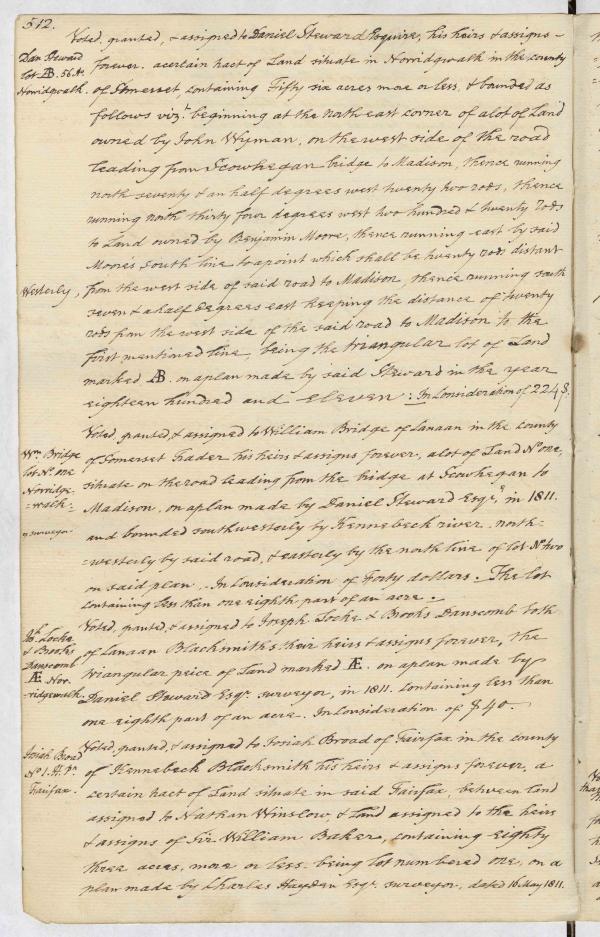 512.
Voted, granted, & assigned to Daniel Steward Esquire, his heirs & assigns
Dan Steward
lot Æ. 56 As.
Norridgwalk.
forever. a certain tract of Land situate in Norridgwalk in the county
of Somerset, containing Fifty six acres more or less. & bounded as
follows vizt. beginning at the northeast corner of a lot of Land
owned by John Wyman, on the west side of the road
leading from Scowhegan bridge to Madison, thence running
north seventy & an half degrees west twenty two rods, thence
running north thirty four degrees west two hundred & twenty rods
to Land owned by Benjamin Moore, thence running east by said
Moore's South line to a point which shall be twenty rods distant
Westerly,
from the west side of said road to Madison, thence running south
seven & a half degrees east keeping the distance of twenty
rods from the west side of the said road to Madison to the
first mentioned line, being the triangular lot of Land
marked Æ. on a plan made by said Steward in the year
eighteen hundred and eleven: In Consideration of 224 $.
Voted, granted, & assigned to William Bridge of Canaan in the county
Wm. Bridge
lot No. one
Norridge-
=walk-
of Somerset Trader his heirs & assigns forever, a lot of Land No. one,
situate on the road leading from the bridge at Scowhegan to
Madison, on a plan made by Daniel Steward Esqr. in 1811.
surveyor
and bounded southwesterly by Kennebeck river, north=
=westerly by said road, & easterly by the north line of lot No. two
on said plan. In Consideration of Forty dollars. The lot
containing less than one eighth part of an acre.
Voted, granted, & assigned to Joseph Locke & Brooks Danscomb both
Jh. Locke
& Brooks
Danscomb
Æ Nor-
-ridgewalk.
of Canaan Blacksmiths their heirs & assigns forever, The
triangular peice of Land marked Æ. on a plan made by
Daniel Steward Esqr. surveyor, in 1811. containing less than
one eighth part of an acre. In Consideration of $40.
Voted, granted, & assigned to Josiah Broad of Fairfax in the county
Josiah Broad
No. 1.
Fairfax.
of Kennebeck Blacksmith his heirs & assigns forever, a
certain tract of Land situate in said Fairfax, between land
assigned to Nathan Winslow, & Land assigned to the heirs
& assigns of Sir William Baker, containing eighty
three acres, more or less. being lot numbered one, on a
plan made by Charles Hayden Esqr. surveyor, dated 16 May 1811.